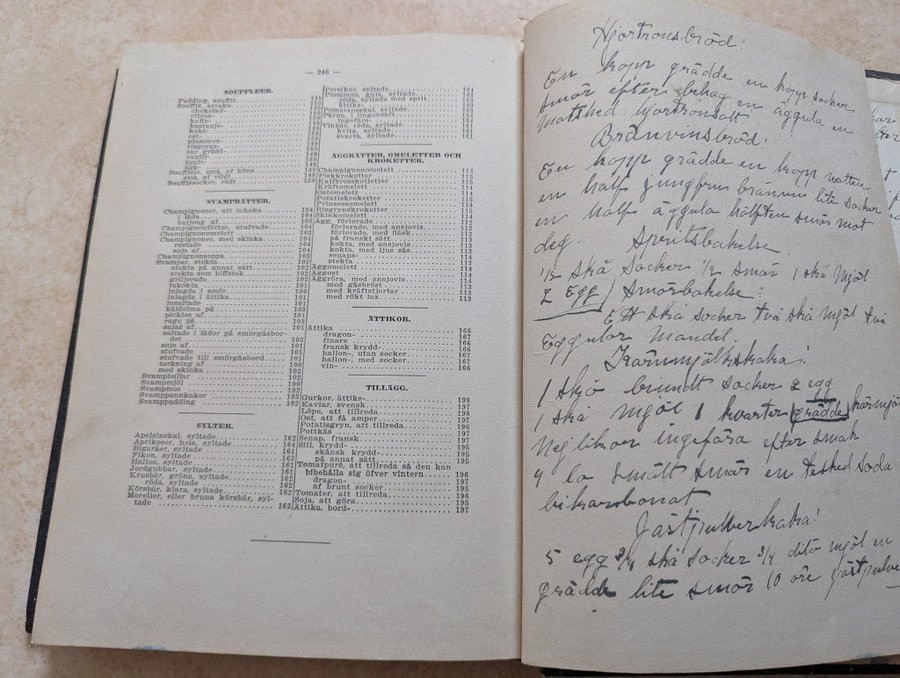 — 246 —
SOUFFLEER.
Pudding, soufflé
Soufflé, arraks-
chokolad-
citron-
kaffe-
kastanje-
kokt-
ost-
plommon-
risgryns-
sur grädd-
vanilj-
äpple-
ägg-
Souffléer, små, af höns
små, af vildt
Soufflésocker, rödt 100
SVAMPRÄTTER.
Champignoner, att inkoka 104
i låda 104
bullor af
Champignonfötter, stufvade 104
Champignonomelett
Champignoner, med skinka
rostade 104
soja af 104
Champignonsoppa
Svampar, stekta 101
stekta på annat sätt 101
stekta som biffstek 101
grilljerade
inkokta 101
inlagda i smör 100
inlagda i ättika 101
insaltade 101
kåldolma på 103
pickles af 101
ragu på 103
salad af 101
saltade i låder på smörgåsbor-
det 103
soja af 101
stufvade 101
stufvade till smörgåsbord 101
torkning af 100
med skinka 102
Svampbullar 102
Svampmjöl 100
Svampmos 102
Svamppannkakor 103
Svamppudding 102
SYLTER.
Apelsinskal, syltade 162
Aprikoser, hela, syltade 164
Bigaråer, syltade 161
Fikon, syltade 163
Hallon, syltade 161
Jordgubbar, syltade 161
Krusbär, gröna, syltade 162
röda, syltade 161
Körsbär, klara, syltade 161
Moreller, eller bruna körsbär, syl-
tade 162
Persikor, syltade 164
Plommon, gula, syltade 164
röda, syltade med sprit 161
ättiks-
Pomaransskal, syltade
Päron, i lingonsaft 161
ingefärs-
Vinbär, röda, syltade 164
hvita, syltade 161
svarta, syltade 161
ÄGGRÄTTER, OMELETTER OCH
KROKETTER.
Champignonomelett 114
Fiskkroketter 114
Kalfbresskolletter 114
Kräftomelett 114
Ostomelett 114
Potatiskroketter 114
Prinsessomelett
Risgrynskroketter 116
Skinkomelett 114
Ägg, förlorade 112
förlorade, med ansjovis 112
förlorade, med fläsk 112
på franskt sätt 113
kokta, med ansjovis 112
kokta, med ljus sås 112
senaps- 113
stekta 112
Äggomelett 114
Äggost 114
Äggröra, med ansjovis 114
med gåsbröst 113
med kräftstjertar 114
med rökt lax 113
ÄTTIKOR.
Ättika 166
dragon- 167
finare 166
fransk krydd- 166
hallon-, utan socker 167
hallon-, med socker 167
vin- 166
TILLÄGG.
Gurkor, ättiks- 198
Kaviar, svensk 197
Löpe, att tillreda 198
Ost, att få amper 198
Potatisgryn, att tillreda 197
Pottkäs 198
Senap, fransk 195
Sill, krydd- 195
skånsk krydd- 195
på annat sätt 195
Tomatpuré, att tillreda så den kan
bibehålla sig öfver vintern 196
dragon- 197
af brunt socker 195
Tomater, att tillreda 196
Soja, att göra 195
Ättika, bord- 197
Hjortronsbröd!
En kopp grädde en kopp socker
smör efter behag en äggula en
matsked hjortronsatt
Bränvinsbröd!
En kopp grädde en kopp vatten
en half jungfrun bränvin lite socker
en half äggula hälften smör mot
deg. Spritsbakelse
1/2 skå socker 1/2 smör 1 skå mjöl
2 Egg / Smörbakelse!
Ett skå socker två skå mjöl två
Eggulor Mandel
Kärnmjölkskaka!
1 skå brundt socker 2 egg
1 skå mjöl 1 kvarter grädde kärnmjö
Neglikor ingefära efter smak
4 lo smält smör en tesked soda
bikarbonat
Jästpulverkaka!
5 egg 3/4 skå socker 3/4 dito mjöl en
grädde lite smör 10 öre jästpulve